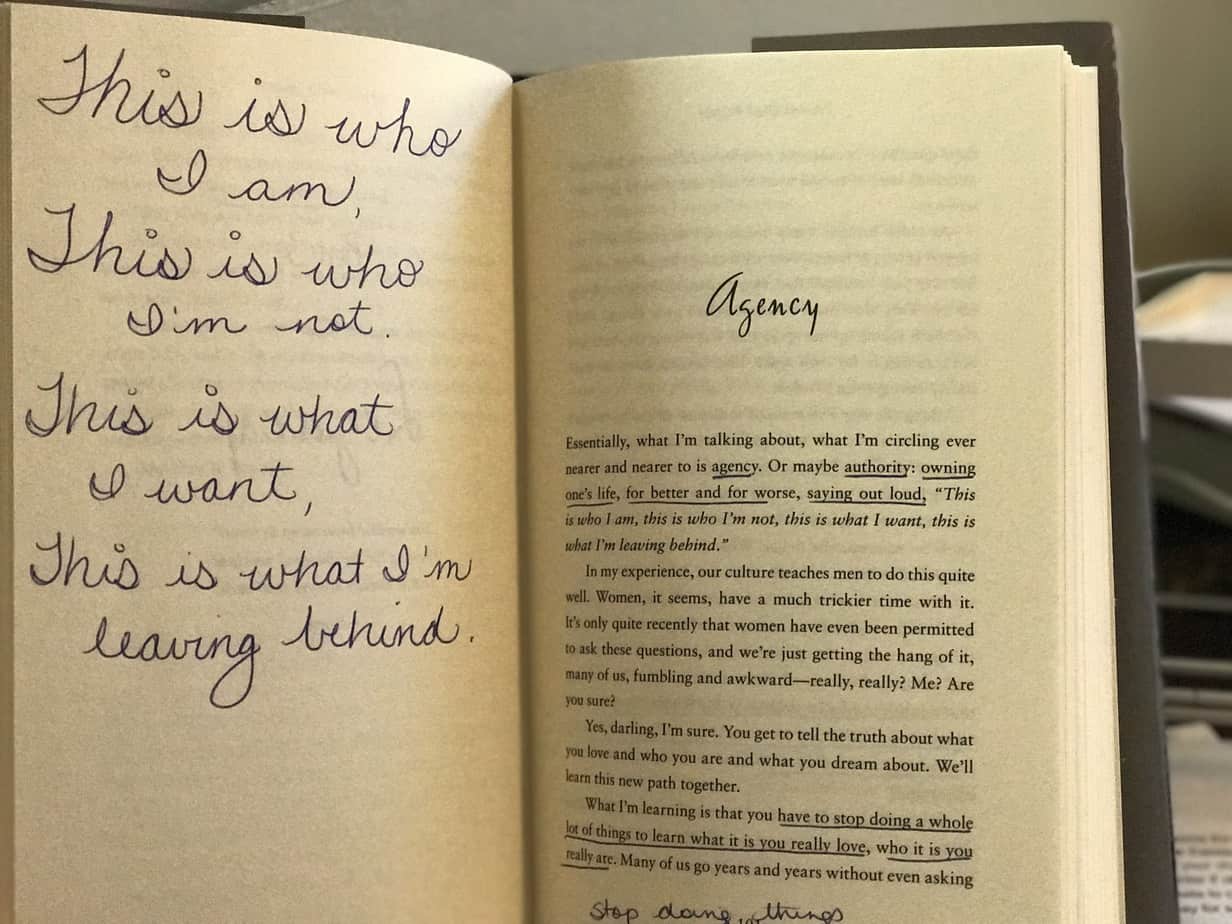 This is who
I am,
This is who
I'm not.
This is what
I want,
This is what I'm
leaving behind.
Agency
Essentially, what I'm talking about, what I'm circling ever
nearer and nearer to is agency. Or maybe authority: owning
one's life, for better and for worse, saying out loud, “This
is who I am, this is who I'm not, this is what I want, this is
what I'm leaving behind.”
In my experience, our culture teaches men to do this quite
well. Women, it seems, have a much trickier time with it.
It's only quite recently that women have even been permitted
to ask these questions, and we're just getting the hang of it,
many of us, fumbling and awkward—really, really? Me? Are
you sure?
Yes, darling, I'm sure. You get to tell the truth about what
you love and who you are and what you dream about. We'll
learn this new path together.
What I'm learning is that you have to stop doing a whole
lot of things to learn what it is you really love, who it is you
really are. Many of us go years and years without even asking
stop doing things